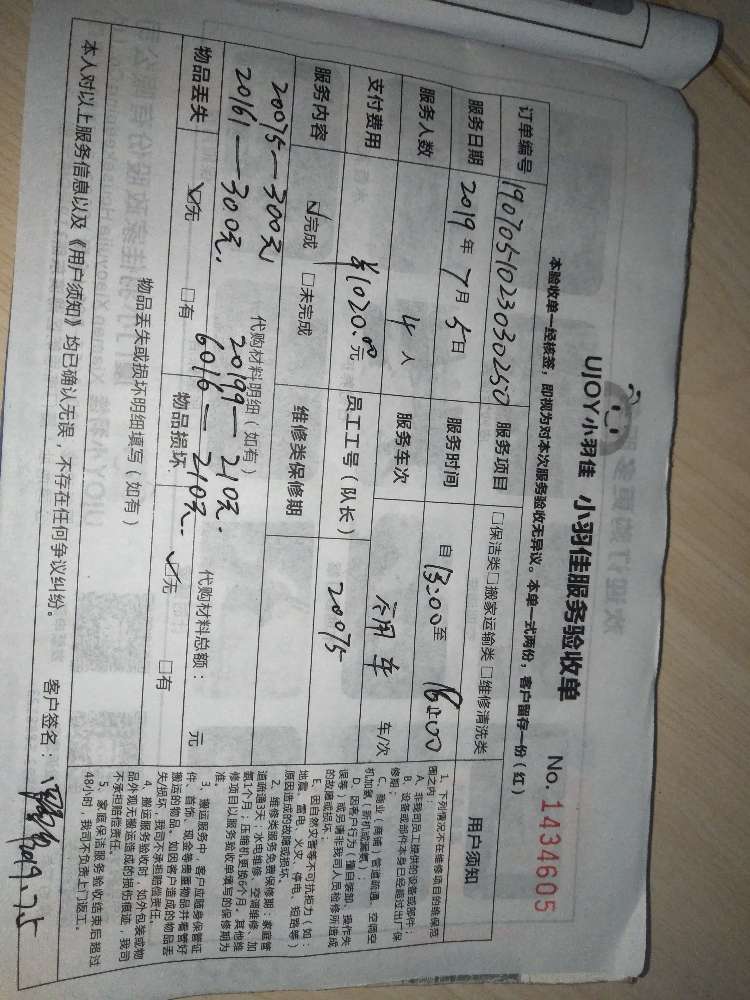 UJOY小羽佳 小羽佳服务验收单 No. 1434605
本验收单一经核签，即视为对本次服务验收无异议。本单一式两份，客户留存一份（红）
订单编号 1907051023030250 服务项目 □保洁类□搬家运输类□维修清洗类
服务日期 2019年7月5日 服务时间 自13:00至18:00
服务人数 4人 服务车次 车/次
支付费用 ¥1020.00元 员工工号（队长） 20075
服务内容 ☑完成 □未完成 维修类保修期
代购材料明细（如有）
20075—300元 20199—210元.
20161—300元. 6016—210元. 代购材料总额： 元
物品丢失 ☑无 □有 物品损坏 ☑无 □有
物品丢失或损坏明细填写（如有）
本人对以上服务信息以及《用户须知》均已确认无误，不存在任何争议纠纷。 客户签名： 2019.7.5
用户须知
1、下列情况不在维修项目的维保范
围之内：
A、非我司员工提供的设备或部件；
B、设备或部件本身已经超过出厂保
修期；
C、商业（商铺）管道疏通、空调空
机加氟（新机或漏氟）；
D、因客户行为（擅自装卸、操作失
误等）或另请非我司人员检修所造成
的故障或损坏。
E、因自然灾害等不可抗拒力（如：
地震、雷电、火灾、停电、短路等）
原因造成的故障或损坏。
2、维修类服务免费保修期：家庭管
道疏通3天；水电维修、空调维修、加
氟1个月；压缩机更换6个月，其他维
修项目以服务验收单填写的保修期为
准。
3、搬运服务中，客户应随身保管证
件、首饰、现金等贵重物品并看管好
搬运的物品。如因客户造成的物品丢
失/损坏，我司不承担赔偿责任。
4、搬运服务验收时，如外包装或物
品外观无搬运造成的损伤痕迹，我司
不承担赔偿责任。
5、家庭保洁服务验收结束后超过
48小时，我司不负责上门返工。